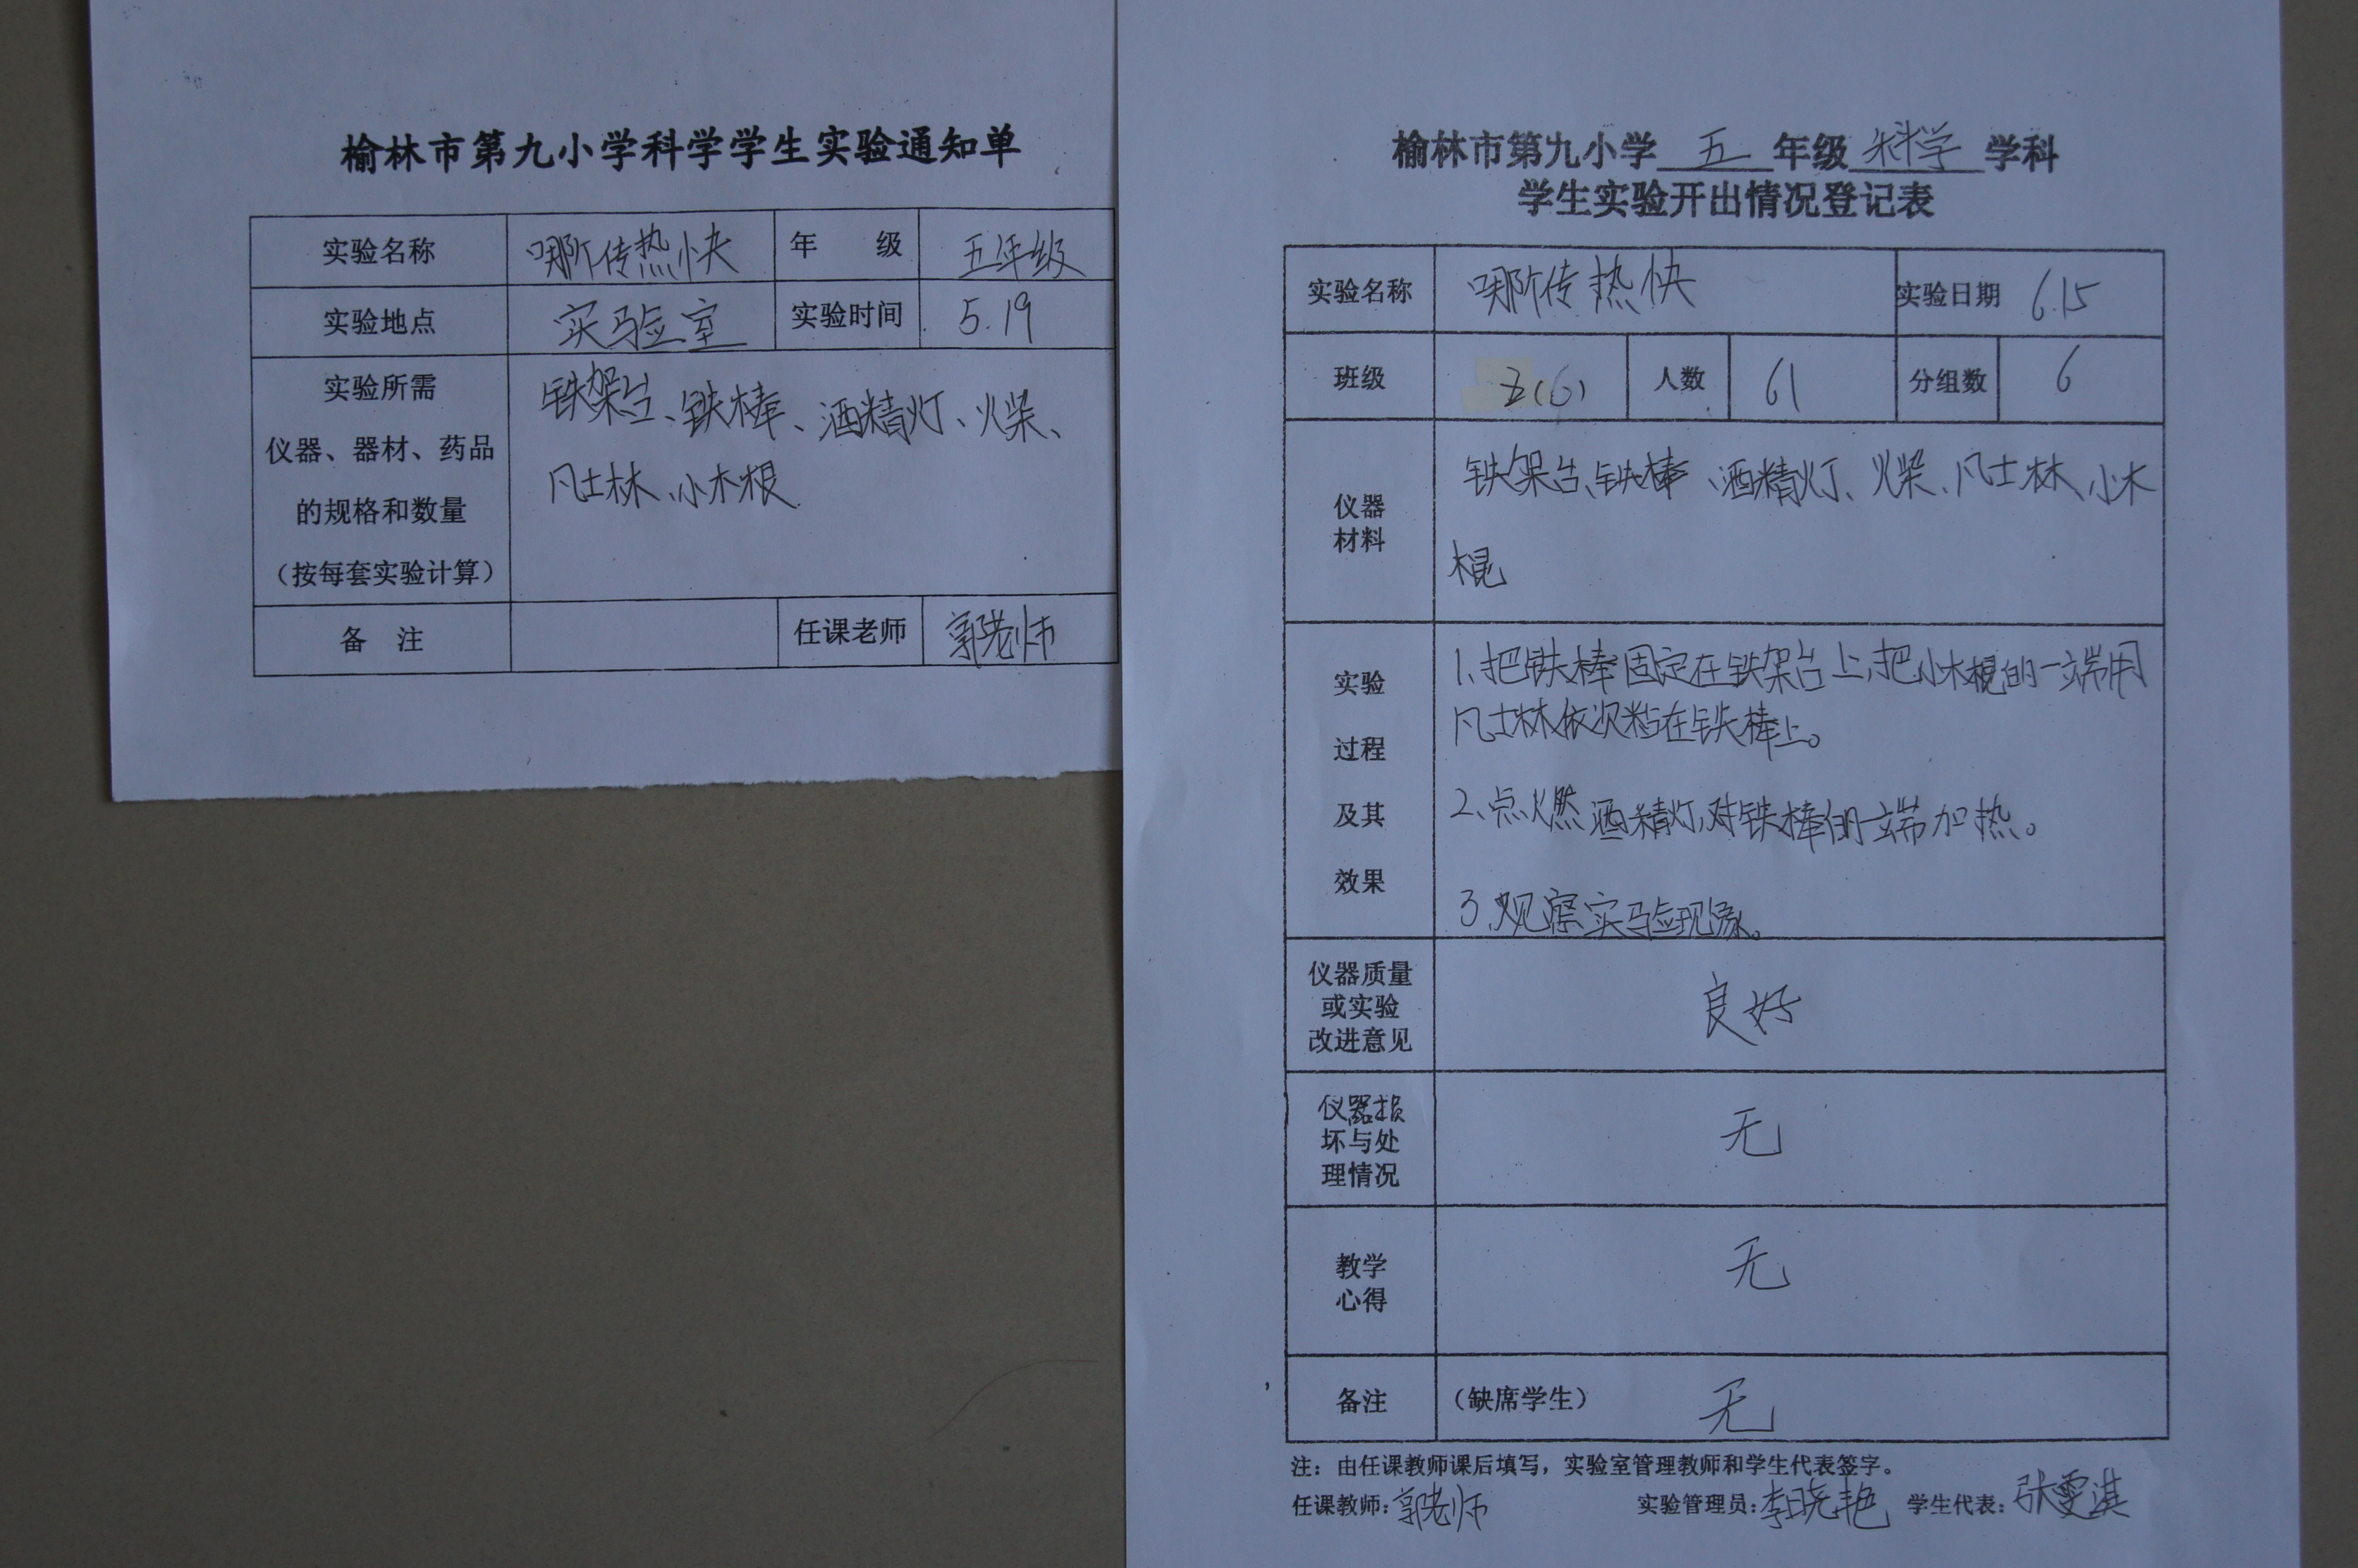 榆林市第九小学科学学生实验通知单
实验名称 哪阶传热快 年 级 五年级
实验地点 实验室 实验时间 5.19
实验所需
仪器、器材、药品
的规格和数量
（按每套实验计算）
铁架台、铁棒、酒精灯、火柴、
凡士林、小木棍
备 注 任课老师 郭老师
榆林市第九小学 五 年级 科学 学科
学生实验开出情况登记表
实验名称 哪阶传热快 实验日期 6.15
班级 五(6) 人数 61 分组数 6
仪器
材料
铁架台、铁棒、酒精灯、火柴、凡士林、小木
棍
实验
过程
及其
效果
1、把铁棒固定在铁架台上，把小木棍的一端用
凡士林依次粘在铁棒上。
2、点燃酒精灯，对铁棒的一端加热。
3、观察实验现象。
仪器质量
或实验
改进意见
良好
仪器损
坏与处
理情况
无
教学
心得
无
备注 （缺席学生） 无
注：由任课教师课后填写，实验室管理教师和学生代表签字。
任课教师：郭老师 实验管理员：李晓艳 学生代表：张雯淇